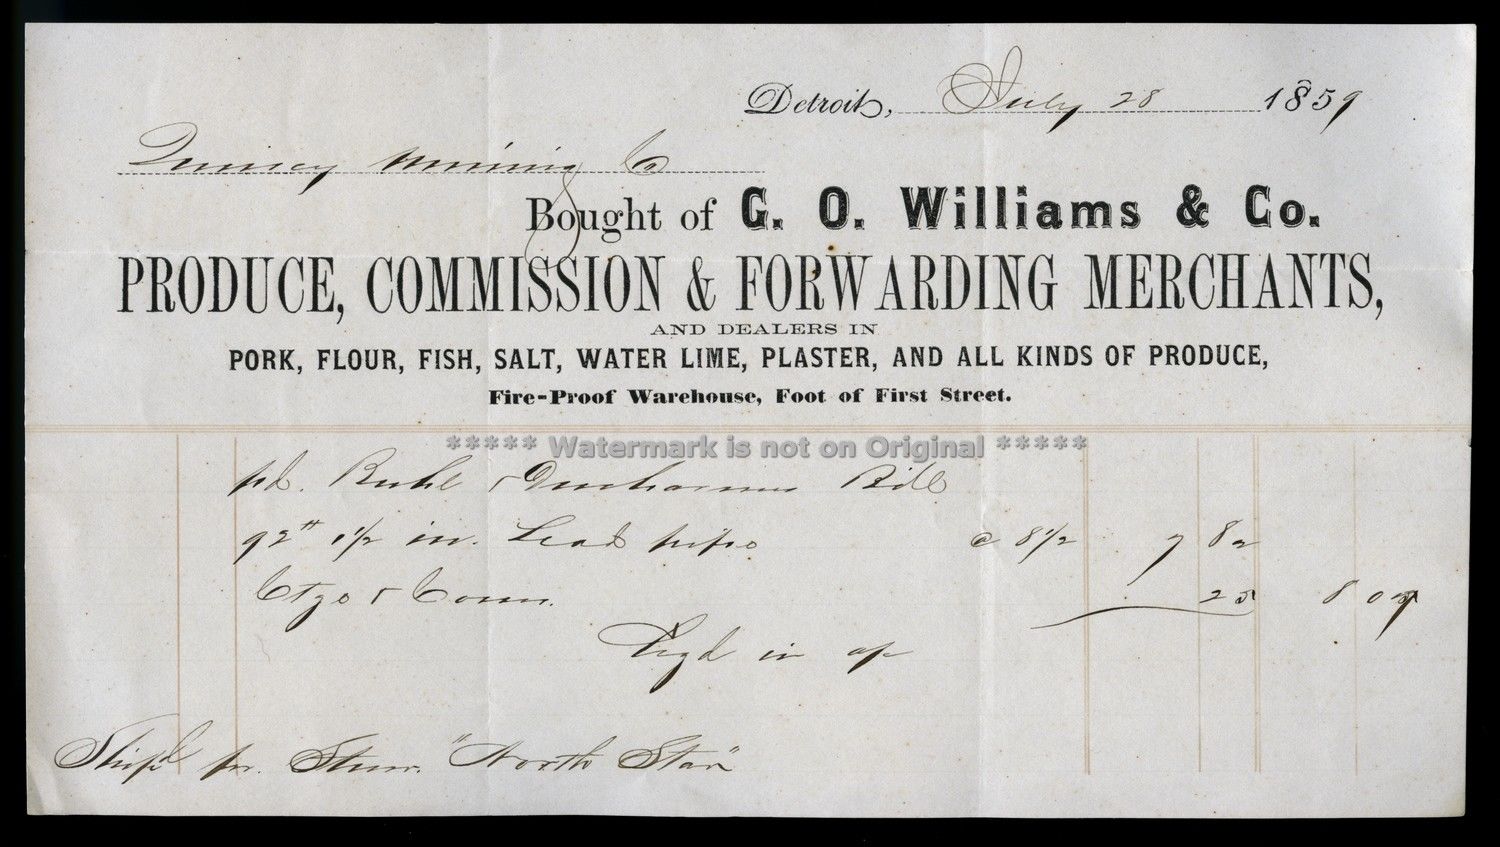 Detroit, July 28 1859
Quincy Mining Co
Bought of G. O. Williams & Co.
PRODUCE, COMMISSION & FORWARDING MERCHANTS,
AND DEALERS IN
PORK, FLOUR, FISH, SALT, WATER LIME, PLASTER, AND ALL KINDS OF PRODUCE,
Fire-Proof Warehouse, Foot of First Street.
***** Watermark is not on Original *****
pd. Buhl & Ducharmes Bill
92# 1½ in. Lead pipe @ 8½ 7 82
Ctge & Comn. 25 8 07
Chgd in a/c
Ship'd pr. Stmr. "North Star"